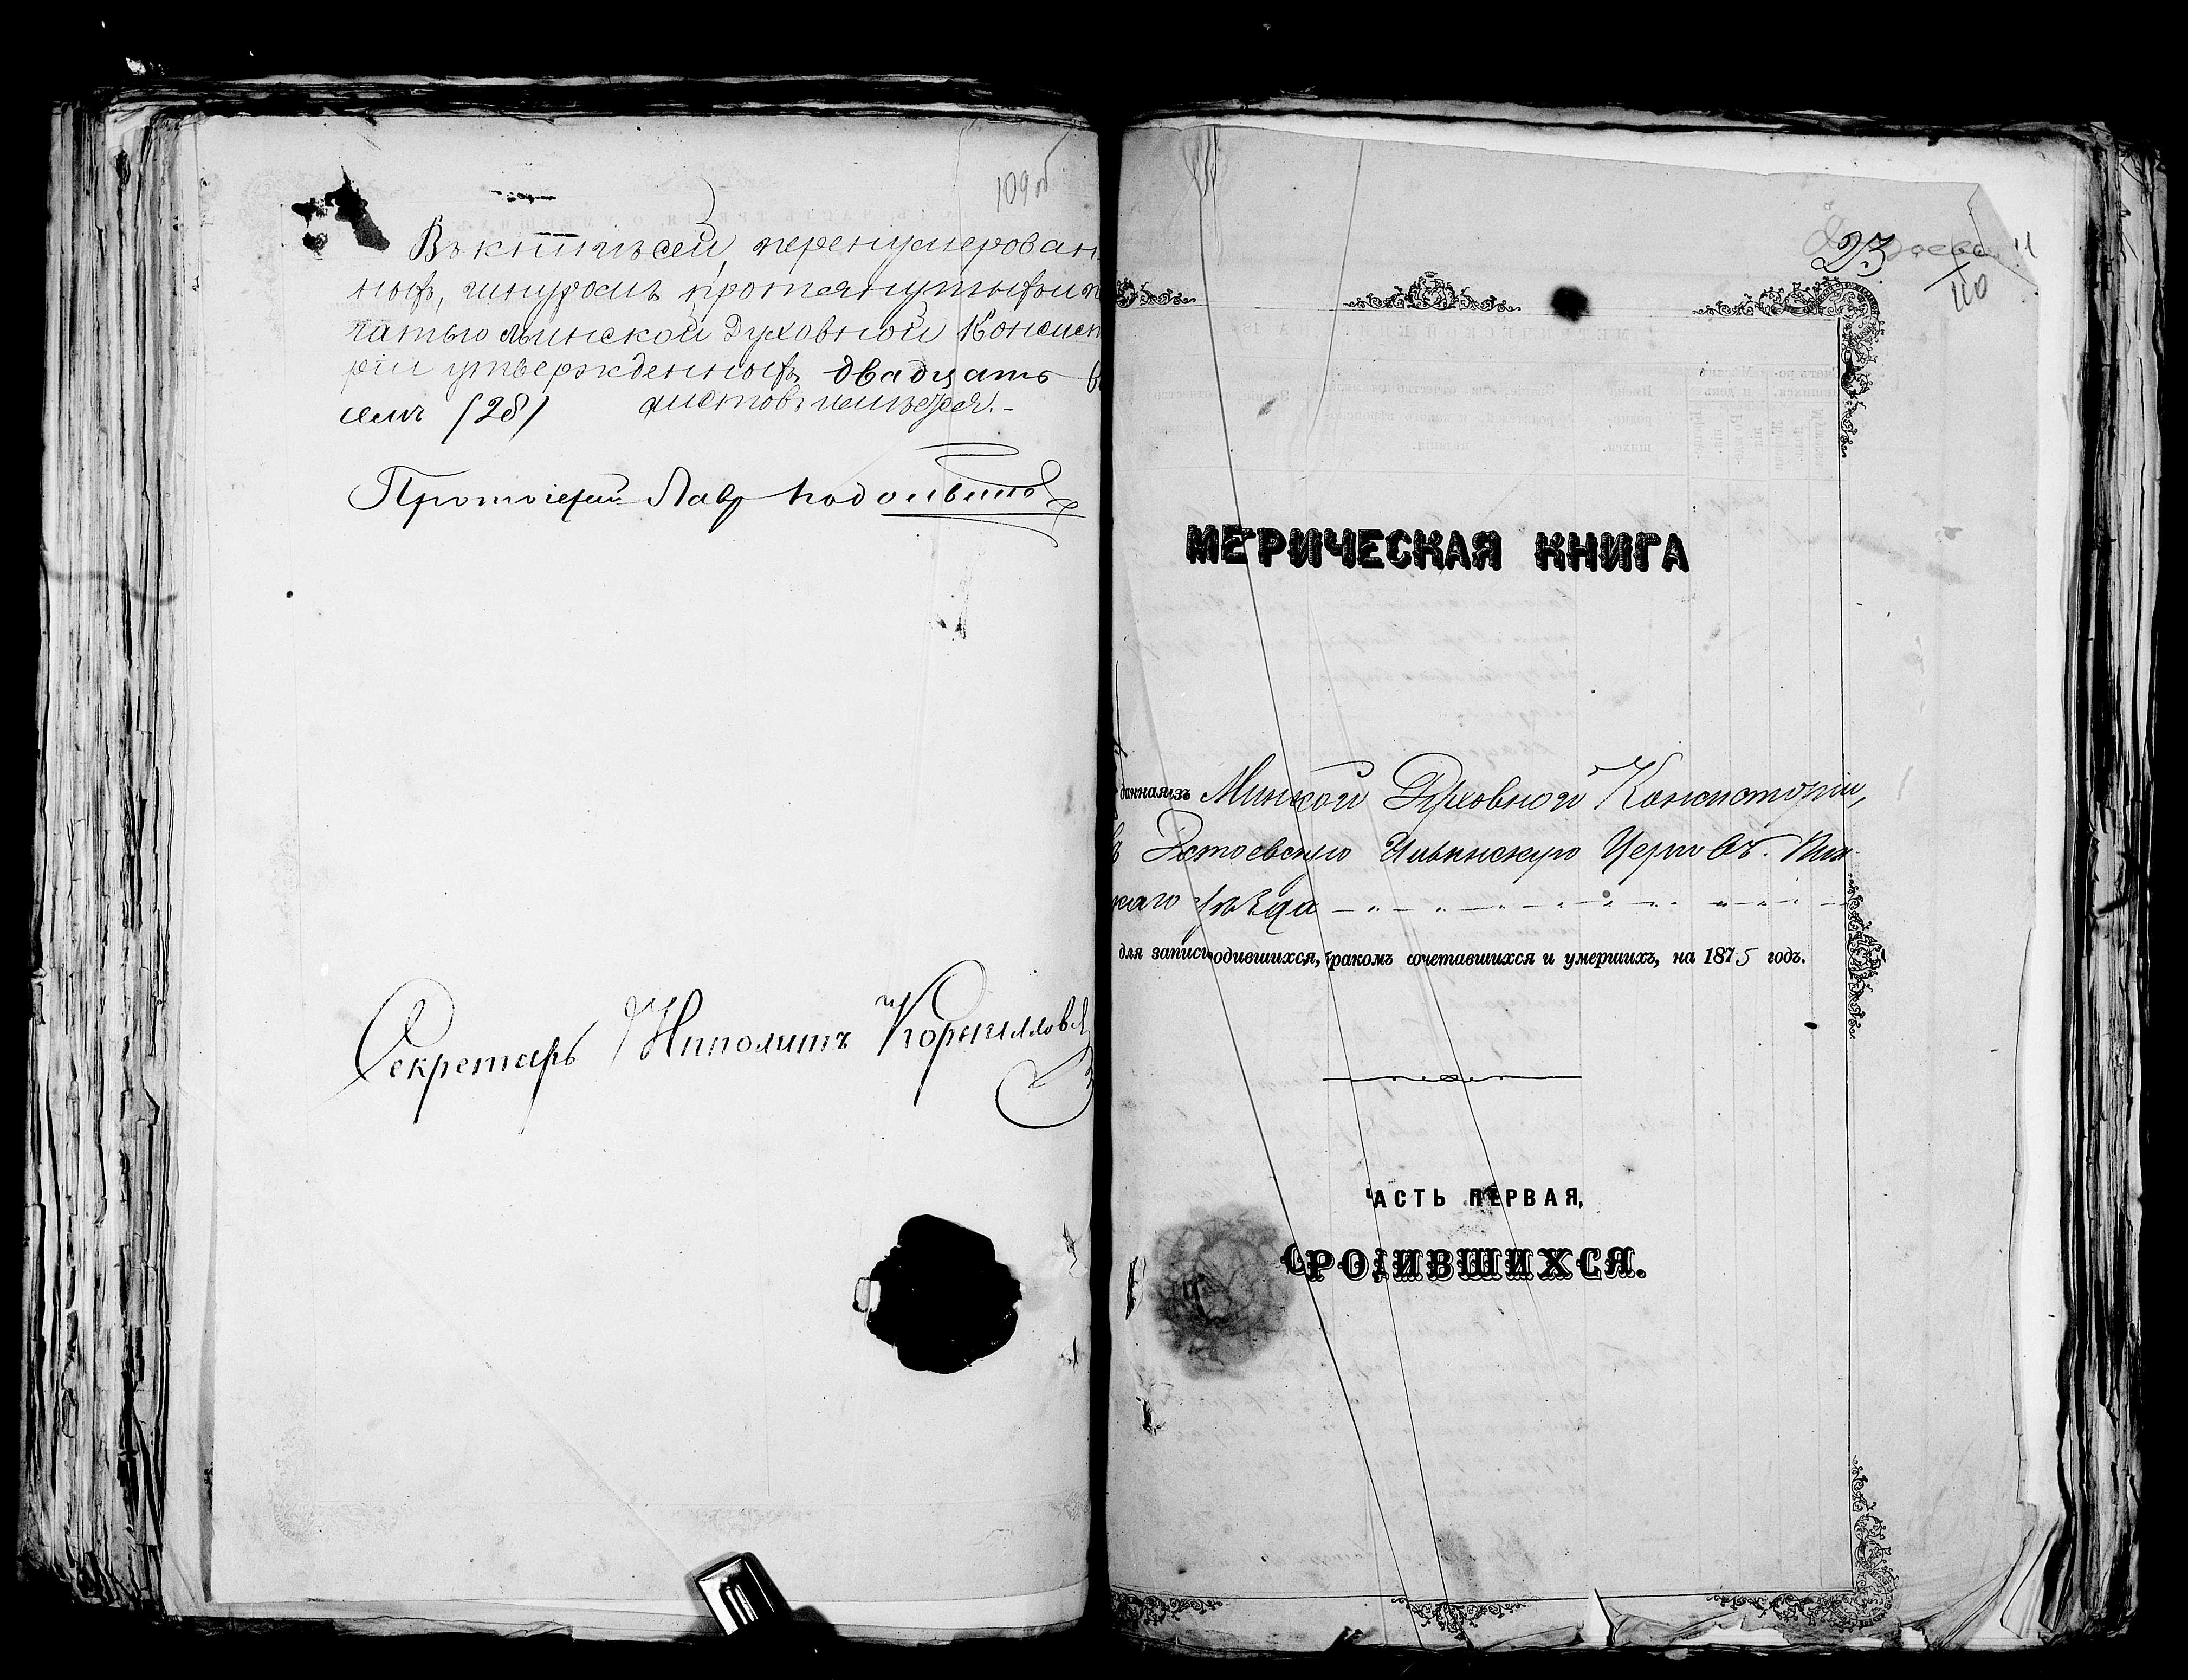 109 об
Въ книгѣ сей, перенумерован
ной, шнуромъ протянутой и п
чатью Минской Духовной Консист
ріи утвержденной, двадцать в
семь /28/ листовъ имѣется.-
Протоіерей Лавр
Секретарь Ипполитъ Корнилов
23
110
МЕРИЧЕСКАЯ КНИГА
данная изъ Минской Духовной Консисторіи,
въ Достоевскую Ильинскую Церковь. Пин
скаго уѣзда
для запис одившихся, бракомъ сочетавшихся и умершихъ, на 1875 годъ.
ЧАСТЬ ПЕРВАЯ,
О РОДИВШИХСЯ.